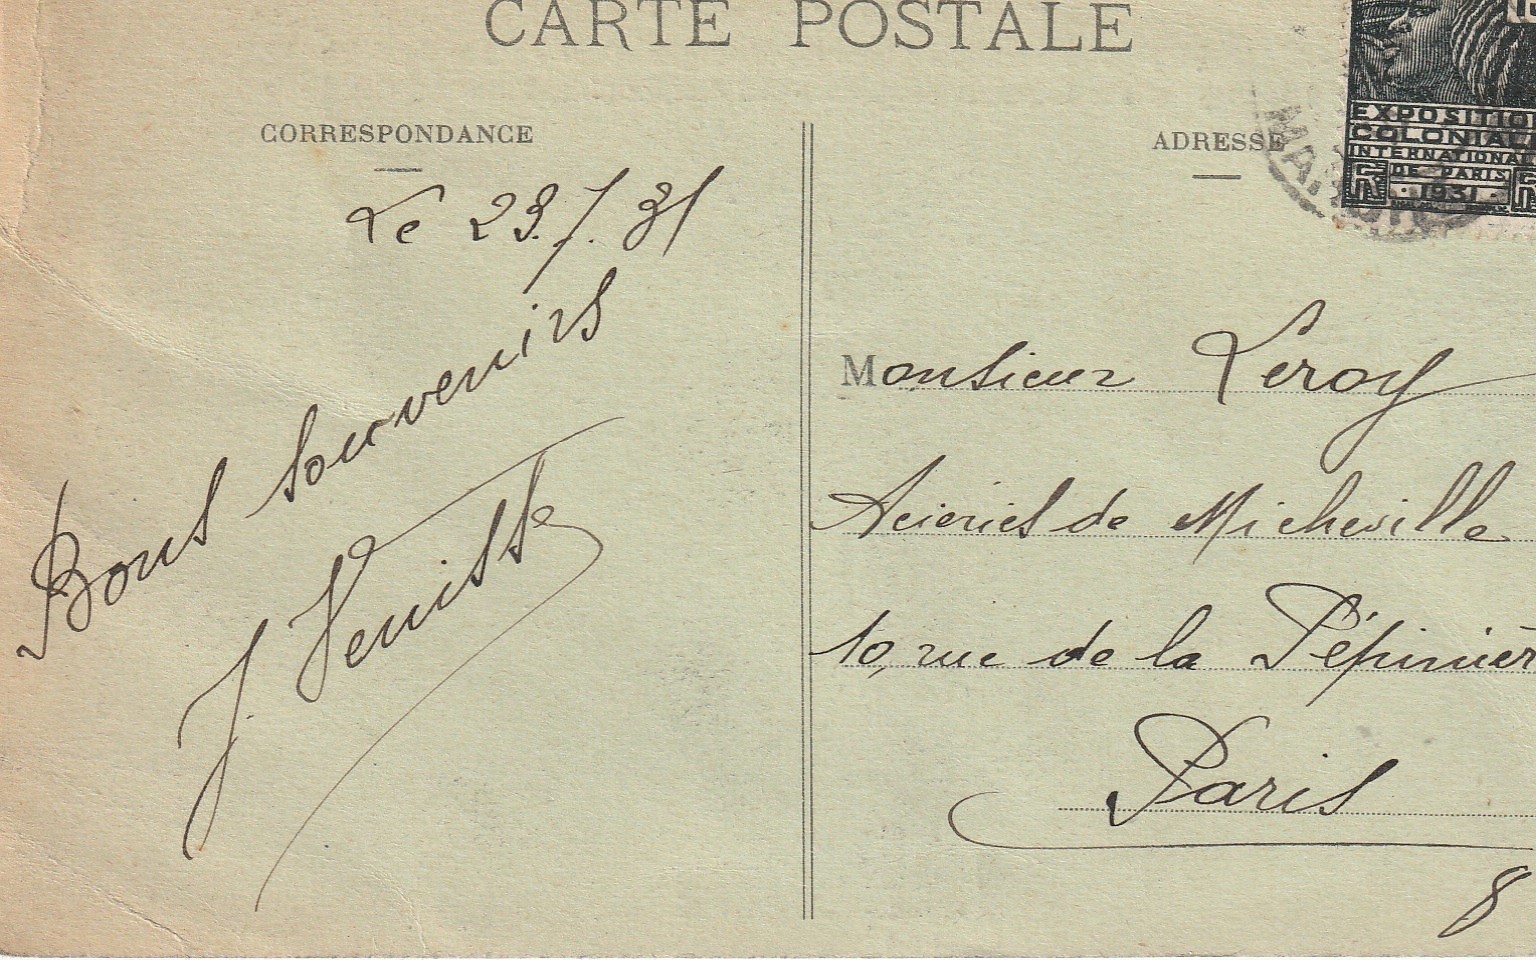 CARTE POSTALE
CORRESPONDANCE
Le 23.7.31
Bons souvenirs
ADRESSE
EXPOSITIO
COLONIALE
INTERNATIONAL
DE PARIS
1931
Monsieur Leroy
Aciéries de Micheville
10, rue de la Pépinièr
Paris
8